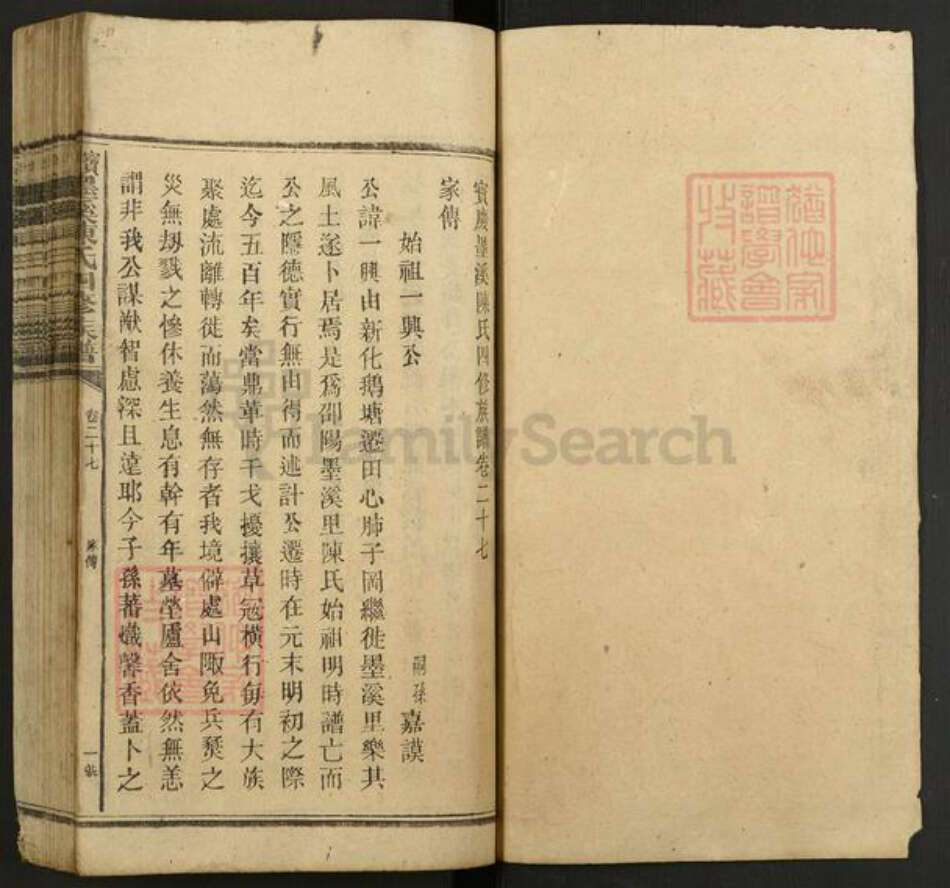 寶慶墨溪陳氏四修族譜卷二十七
家傳
始祖一興公
嗣孫嘉謨
公諱一興由新化鵝塘遷田心肺子岡繼徙墨溪里樂其
風土遂卜居焉是爲邵陽墨溪里陳氏始祖明時譜亡而
公之隱德實行無由得而述計公遷時在元末明初之際
迄今五百年矣當鼎革時干戈擾攘草寇橫行每有大族
聚處流離轉徙而蕩然無存者我境僻處山陬免兵燹之
災無劫戮之慘休養生息有幹有年墓塋廬舍依然無恙
謂非我公謀猷智慮深且遠耶今子孫蕃熾馨香蓋卜之
寶墨溪陳氏四修族譜
卷二十七
家傳
一張
FamilySearch